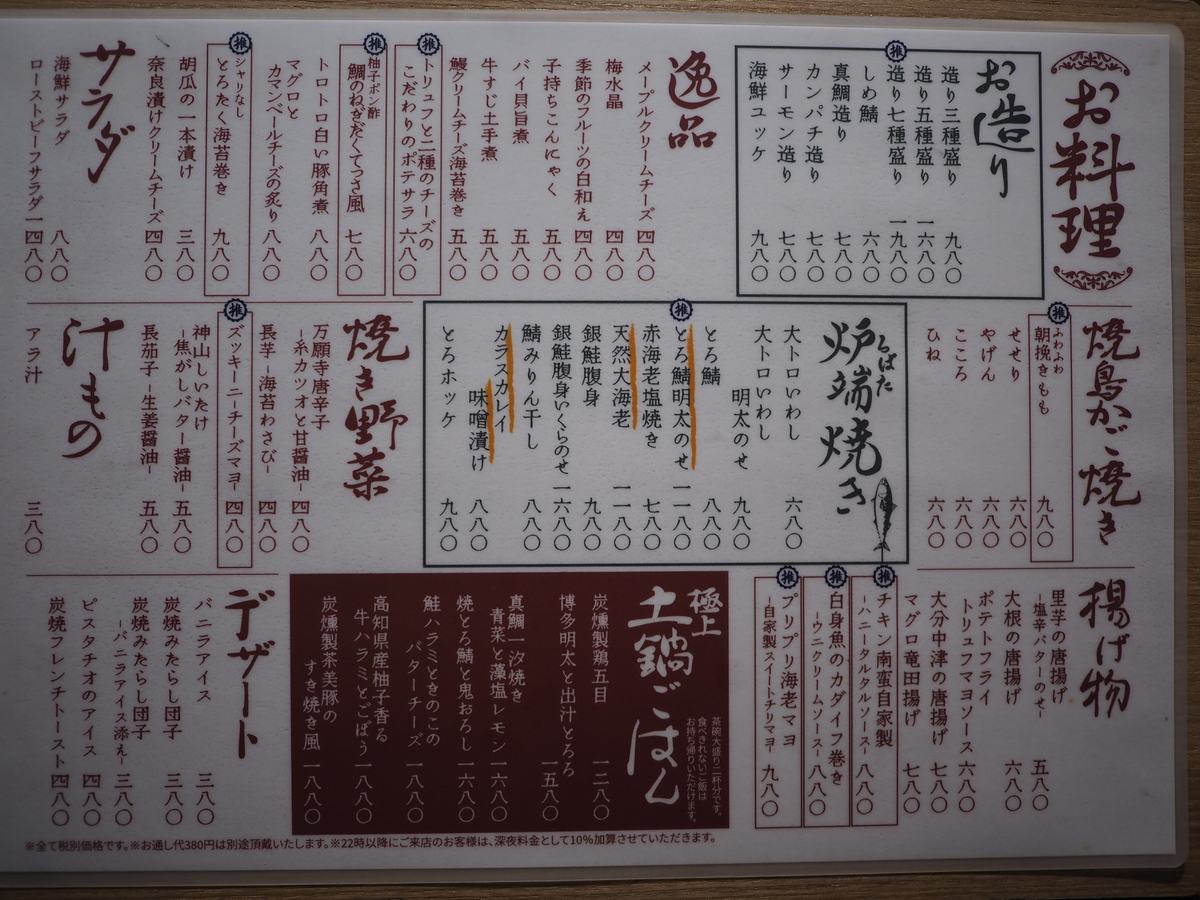 お料理
お造り
造り三種盛り 九八〇
造り五種盛り 一六八〇
推
造り七種盛り 一九八〇
しめ鯖 六八〇
真鯛造り 七八〇
カンパチ造り 七八〇
サーモン造り 七八〇
海鮮ユッケ 九八〇
逸品
メープルクリームチーズ 四八〇
梅水晶 四八〇
季節のフルーツの白和え 四八〇
子持ちこんにゃく 五八〇
バイ貝旨煮 五八〇
牛すじ土手煮 五八〇
鰻クリームチーズ海苔巻き 五八〇
推
トリュフと二種のチーズの
こだわりのポテサラ 六八〇
推
柚子ポン酢
鯛のねぎだくてっさ風 七八〇
トロトロ白い豚角煮 八八〇
マグロと
カマンベールチーズの炙り 八八〇
推
シャリなし
とろたく海苔巻き 九八〇
胡瓜の一本漬け 三八〇
奈良漬けクリームチーズ 四八〇
サラダ
海鮮サラダ 八八〇
ローストビーフサラダ 一四八〇
焼鳥かご焼き
推
ふわふわ
朝挽きもも 九八〇
せせり 六八〇
やげん 六八〇
こころ 六八〇
ひね 六八〇
炉端焼き
ろばた
大トロいわし 六八〇
大トロいわし
明太のせ 九八〇
とろ鯖 八八〇
推
とろ鯖明太のせ 一一八〇
赤海老塩焼き 七八〇
天然大海老 一一八〇
銀鮭腹身 九八〇
銀鮭腹身いくらのせ 一六八〇
鯖みりん干し 八八〇
カラスカレイ
味噌漬け 八八〇
とろホッケ 九八〇
焼き野菜
万願寺唐辛子
-糸カツオと甘醤油- 四八〇
長芋 -海苔わさび- 四八〇
推
ズッキーニチーズマヨ 四八〇
神山しいたけ
-焦がしバター醤油- 五八〇
長茄子 -生姜醤油- 五八〇
汁もの
アラ汁 三八〇
揚げ物
里芋の唐揚げ
-塩辛バターのせ- 五八〇
大根の唐揚げ 六八〇
ポテトフライ
トリュフマヨソース 六八〇
大分中津の唐揚げ 七八〇
マグロ竜田揚げ 七八〇
推
チキン南蛮自家製
-ハニータルタルソース- 八八〇
推
白身魚のカダイフ巻き
-ウニクリームソース- 八八〇
推
プリプリ海老マヨ
-自家製スイートチリマヨ- 九八〇
極上
土鍋ごはん
茶碗大盛り二杯分です。
食べきれないご飯は
お持ち帰りいただけます。
炭燻製鶏五目 一二八〇
博多明太と出汁とろろ 一五八〇
真鯛一汐焼き
青菜と藻塩レモン 一六八〇
焼とろ鯖と鬼おろし 一六八〇
鮭ハラミときのこの
バターチーズ 一八八〇
高知県産柚子香る
牛ハラミとごぼう 一八八〇
炭燻製茶美豚の
すき焼き風 一八八〇
デザート
バニラアイス 三八〇
炭焼みたらし団子 三八〇
炭焼みたらし団子
-バニラアイス添え- 三八〇
ピスタチオのアイス 四八〇
炭焼フレンチトースト 四八〇
※全て税別価格です。※お通し代380円は別途頂戴いたします。※22時以降にご来店のお客様は、深夜料金として10%加算させていただきます。